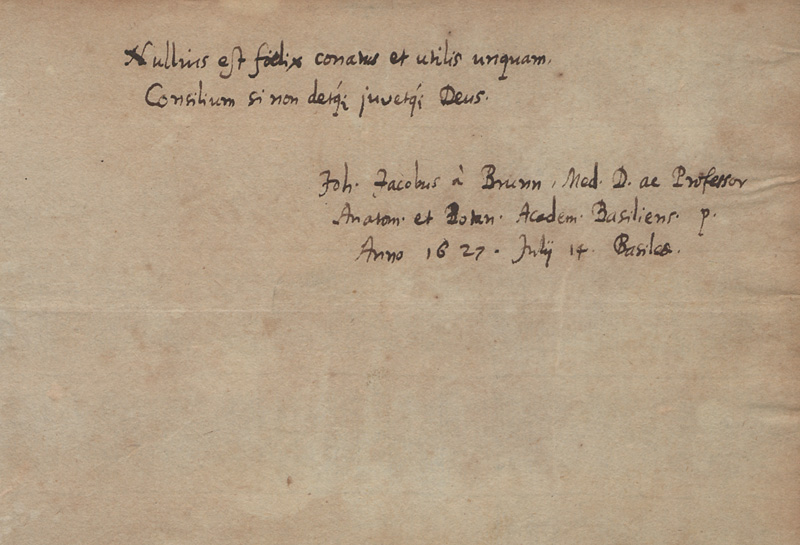 Nullius est foelix conatus et utilis unquam.
Consilium si non detq; juvetq; Deus.
Joh. Jacobus à Brunn, Med. D. ac Professor
Anatom. et Botan. Academ. Basiliens. p.
Anno 1627. Julij 14. Basileæ.